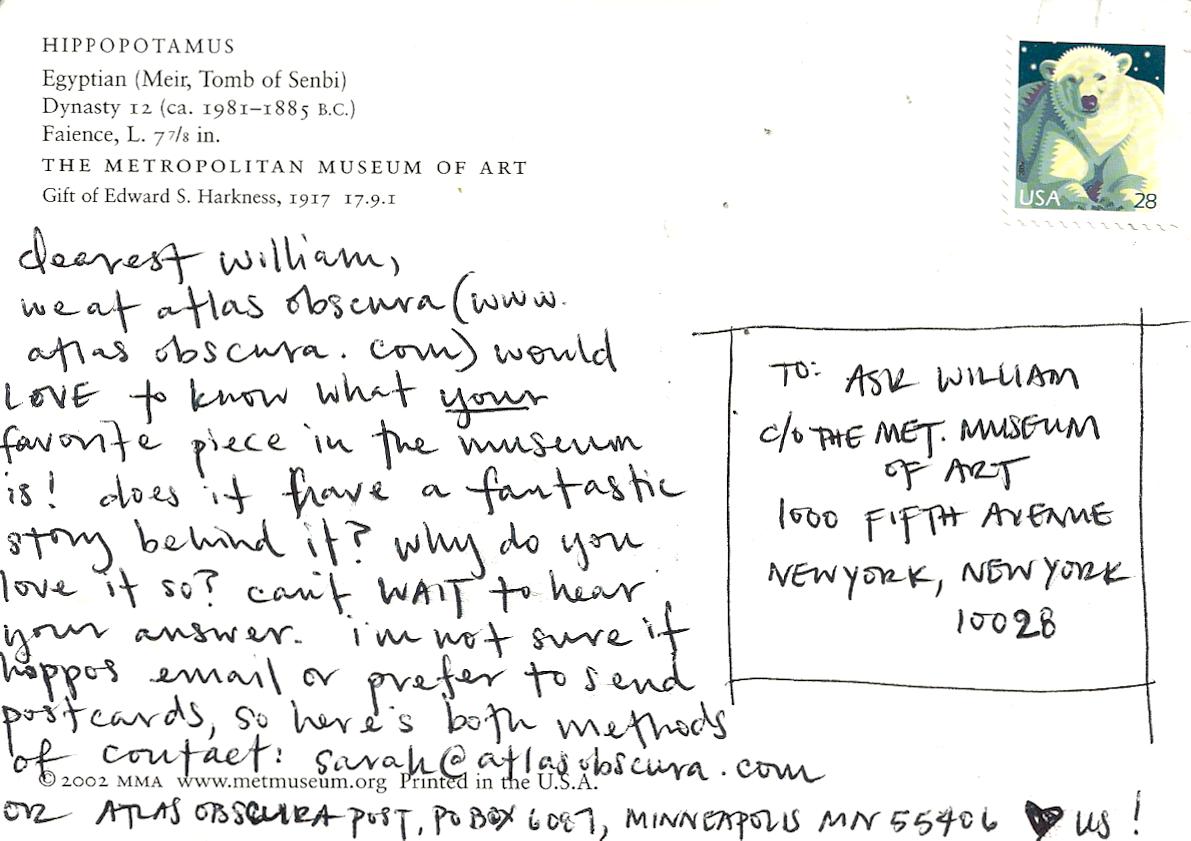 HIPPOPOTAMUS
Egyptian (Meir, Tomb of Senbi)
Dynasty 12 (ca. 1981–1885 B.C.)
Faience, L. 7 7/8 in.
THE METROPOLITAN MUSEUM OF ART
Gift of Edward S. Harkness, 1917 17.9.1
USA 28
dearest william,
we at atlas obscura (www.
atlas obscura.com) would
LOVE to know what your
favorite piece in the museum
is! does it have a fantastic
story behind it? why do you
love it so? can't WAIT to hear
your answer. i'm not sure if
hippos email or prefer to send
postcards, so here's both methods
of contact: sarah@atlasobscura.com
© 2002 MMA www.metmuseum.org Printed in the U.S.A.
OR ATLAS OBSCURA POST, PO BOX MINNEAPOLIS MN 55406 ♥ US!
TO: ASK WILLIAM
C/O THE MET. MUSEUM
OF ART
1000 FIFTH AVENUE
NEW YORK, NEW YORK
10028